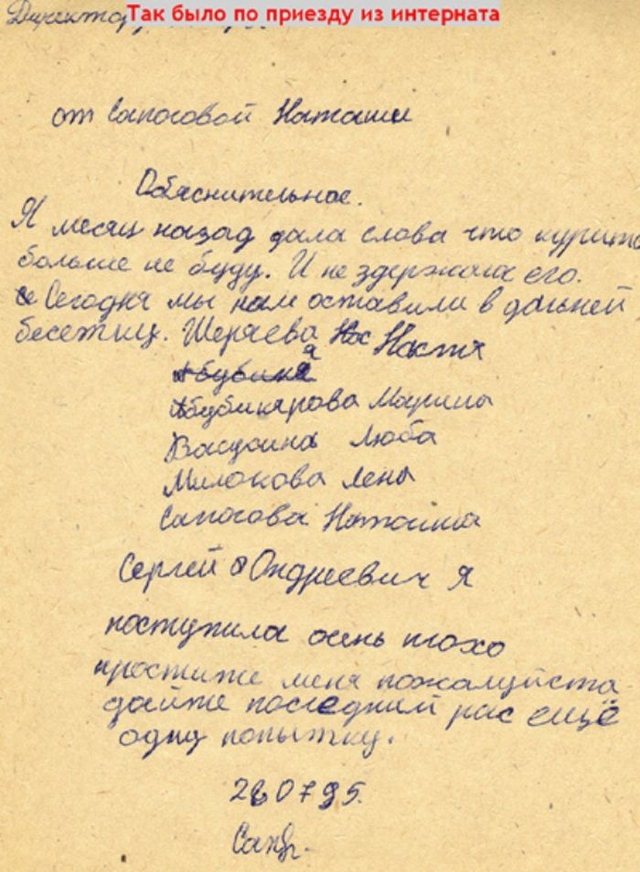 Так было по приезду из интерната
Директору
от Сапоговой Наташи
Обяснительное.
Я месяц назад дала слова что курить
больше не буду. И не здержала его.
Сегодня мы нам оставили в дальней
бесетниц. Шеряева Нас Настя
Абубикярова Марина
Васдаина Люба
Милокова Лена
Сапогова Наташа
Сергей Ондреевич Я
поступила очень плохо
простите меня пожалуйста
дайте последний рас ещё
одну попытку.
280795.
Сапог.